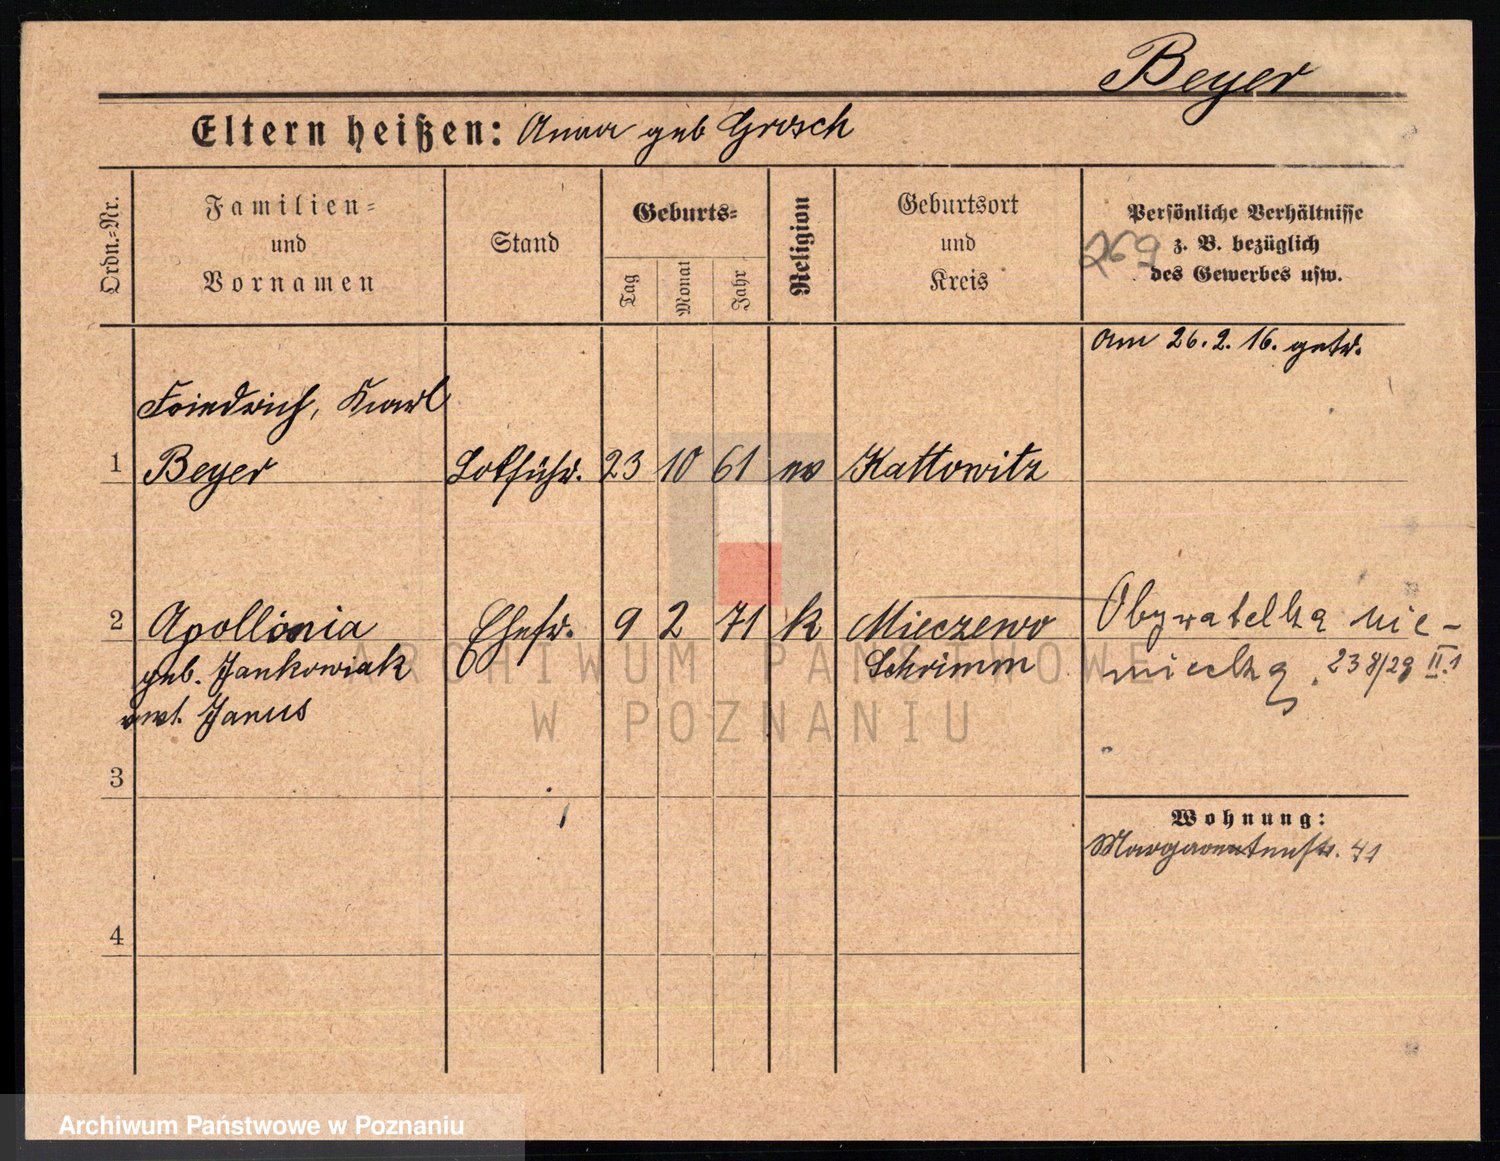 Beyer
Eltern heißen: Anna geb Grosch
Ordn.-Nr.
Familien-
und
Vornamen
Stand
Geburts-
Tag
Monat
Jahr
Religion
Geburtsort
und
Kreis
Persönliche Verhältnisse
z. B. bezüglich
des Gewerbes usw.
269
am 26. 2. 16. getr.
Friedrich, Karl
1 Beyer Lokführ. 23 10 61 ev Kattowitz
2 Apollonia Ehefr. 9 2 71 k Mieczewo Obywatelka nie-
geb. Jankowiak Schrimm miecka. 238/29 II.1
vwt. Janus
3
Wohnung:
Margaretenstr. 41
4
ARCHIWUM PAŃSTWOWE
W POZNANIU
Archiwum Państwowe w Poznaniu